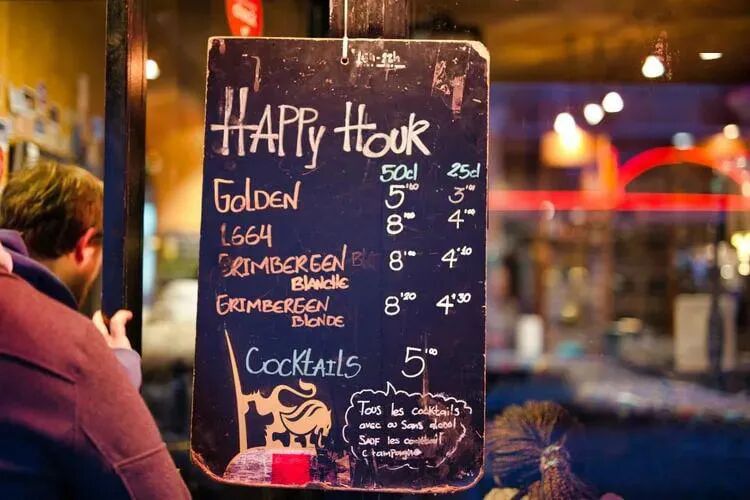 16h-22h
HAPPy HOUR
50cl 25cl
GOLDEN 5'00 3'00
1664 8'00 4'00
GRIMBERGEN 8'00 4'10
BLANCHE
GRIMBERGEN 8'20 4'30
BLONDE
COCKTAILS 5'00
Tous les cocktails
avec ou sans alcool
SAUF les cocktail
champagne